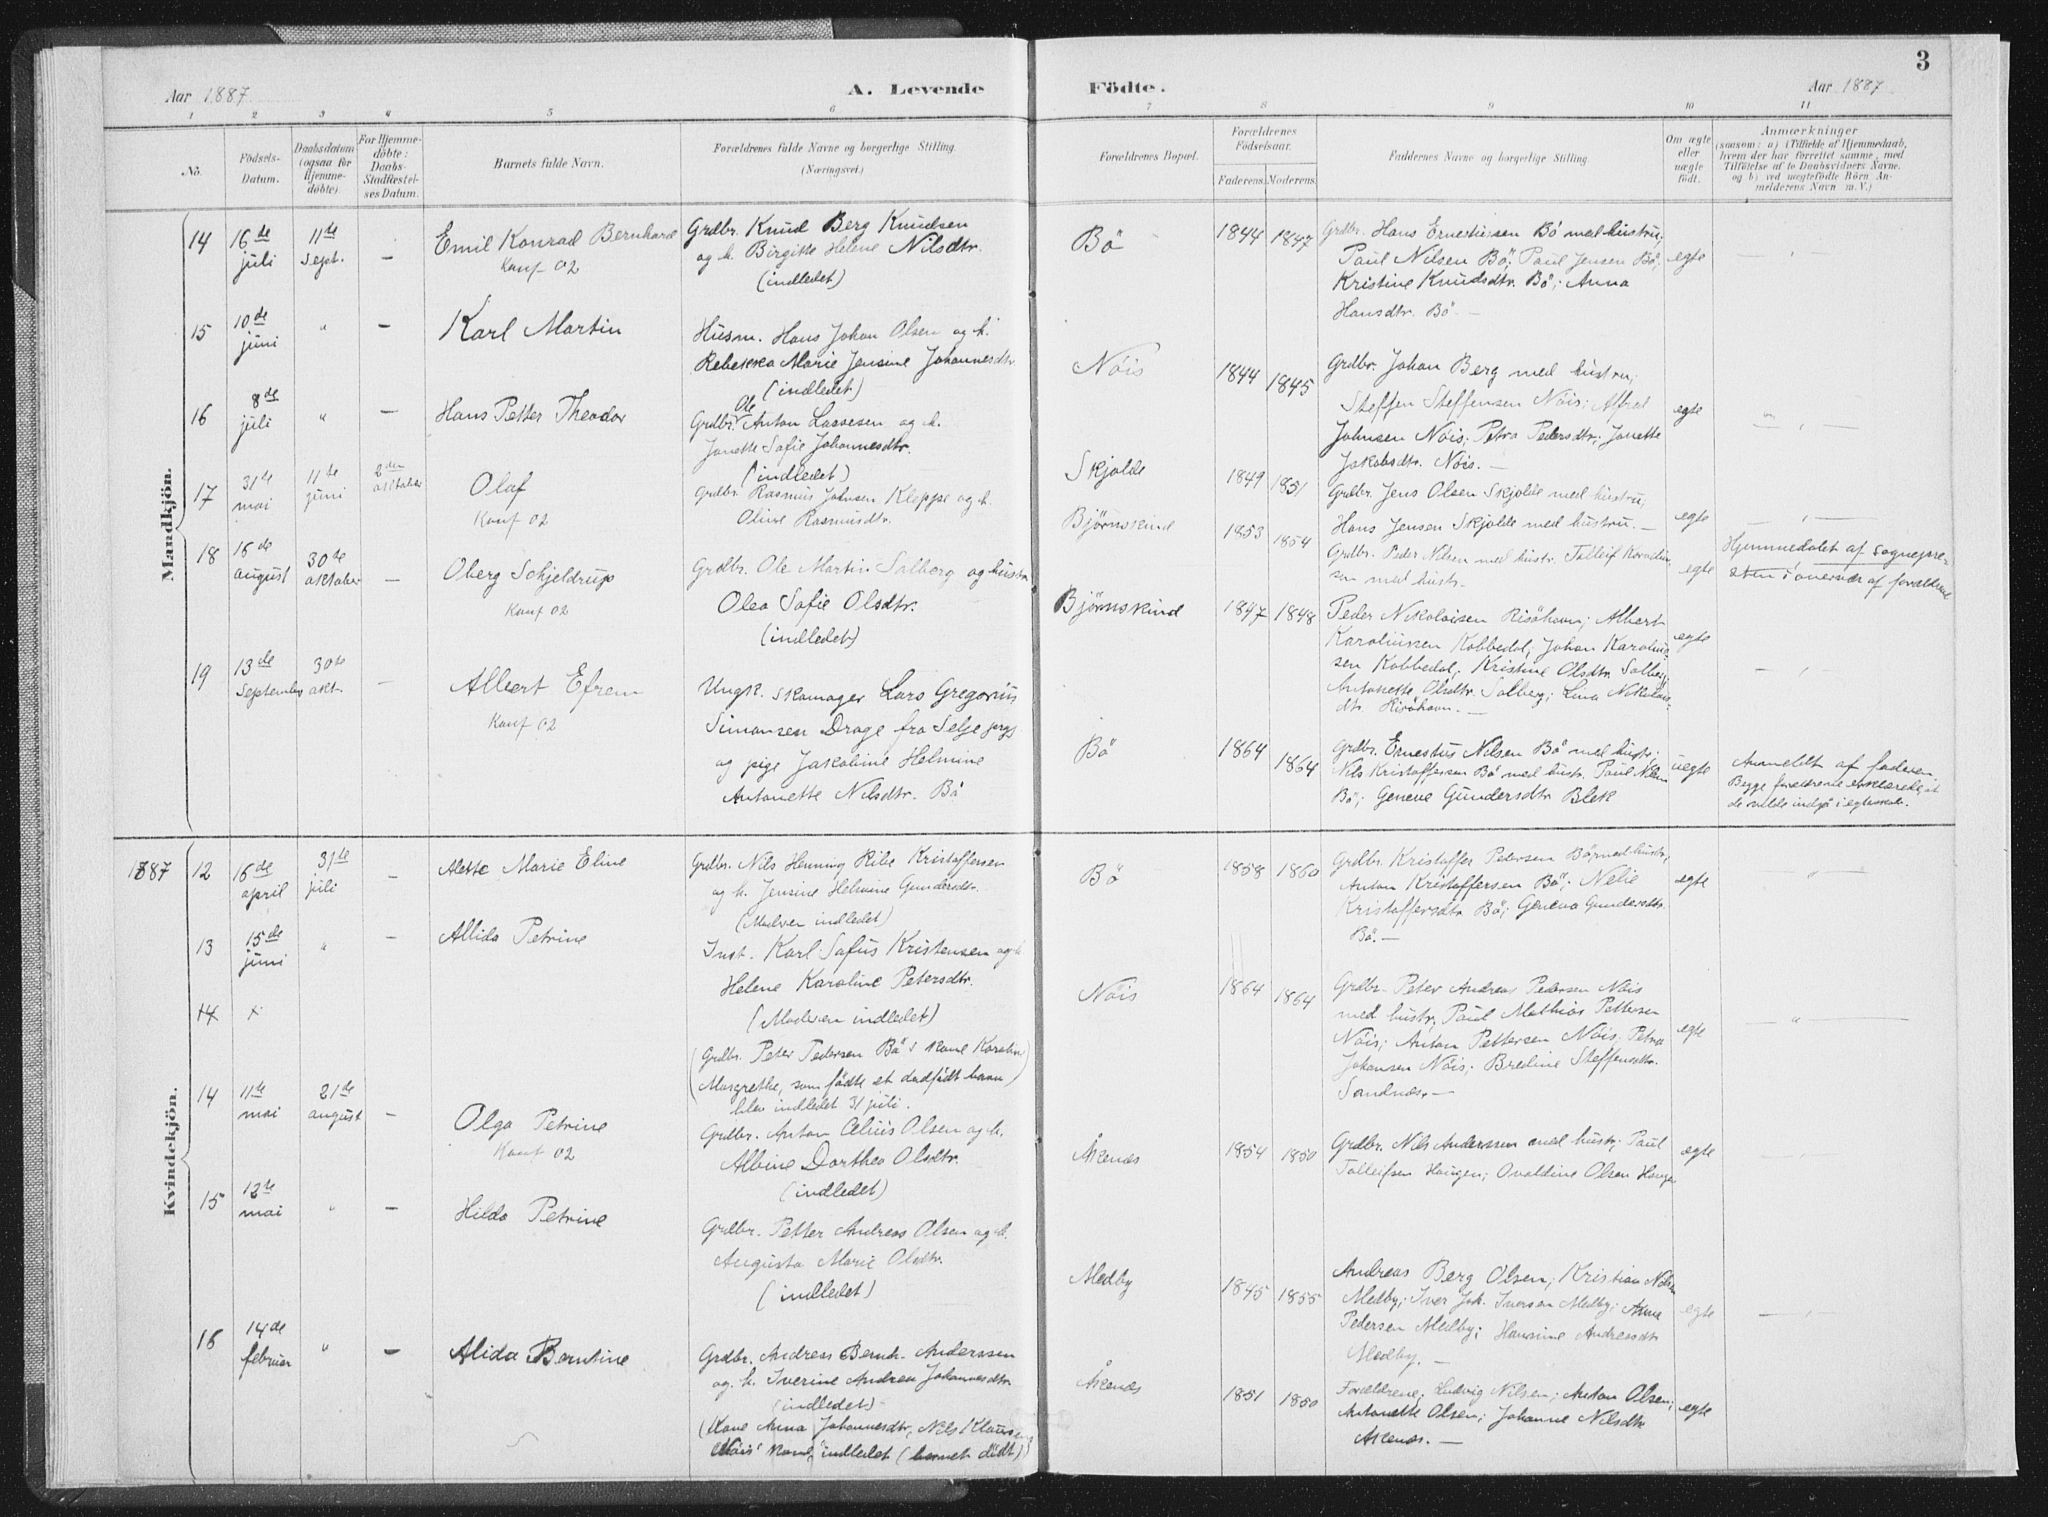 3
Aar 1887.
A. Levende
Födte.
Aar 1887
1 2 3 4 5 6 7 8 9 10 11
No.
Födsels-
Datum.
Daabsdatum
(ogsaa for
Hjemme-
döbte).
For Hjemme-
döbte:
Daabs-
Stadfæstel-
ses Datum.
Barnets fulde Navn.
Forældrenes fulde Navne og borgerlige Stilling.
(Næringsvei.)
Forældrenes Bopæl.
Forældrenes
Födselsaar.
Faderens. Moderens.
Faddernes Navne og borgerlige Stilling.
Om ægte
eller
uægte
födt.
Anmærkninger
(saasom: a) i Tilfælde af Hjemmedaab,
hvem der har forrettet samme, med
Tilföielse af to Daabsvidners Navne.
og b) ved uægtefödte Börn An-
melderens Navn m. V.)
Mandkjön.
14
16de
juli
11te
sept.
Emil Konrad Bernhard
Konf 02
Grdbr. Knud Berg Knudsen
og h. Birgitte Helene Nilsdtr.
(indledet)
Bö
1844 1847
Grdbr. Hans Ernestussen Bö med hustru;
Paul Nilsen Bö; Paul Jensen Bö;
Kristine Knudsdtr. Bö; Anna
Hansdtr. Bö
egte
15
10de
juni
"
Karl Martin
Husm. Hans Johan Olsen og h.
Rebekka Marie Jensine Johannesdtr
(indledet)
Nöis
1844 1845
Grdbr. Johan Berg med hustru;
Steffen Steffensen Nöis; Alfred
Johnsen Nöis; Petra Pedersdtr; Janette
Jakobsdtr. Nöis.
egte
16
8de
juli
"
Hans Petter Theodor
Grdbr. Ole Anton Lassesen og h.
Janette Sofie Johannesdtr.
(indledet)
Skjolde
1849 1851
Grdbr. Jens Olsen Skjolde med hustru,
Hans Jensen Skjolde med hustru.
egte
17
31te
mai
11te
juni
2den
oktober
Olaf
Konf 02
Grdbr. Rasmus Johnsen Kleppe og h.
Oline Rasmusdtr.
Björnskind
1853 1854
Grdbr. Peder Nilsen med hustr. Tolleif Kornelius
sen med hustr.
egte
Hjemmedöbt af sognepre-
sten i nærvær af forældrene
18
16de
august
30te
oktober
Oberg Schjeldrup
Konf 02
Grdbr. Ole Martin Solberg og hustru
Olea Sofie Olsdtr.
(indledet)
Björnskind
1847 1848
Peder Nikolaisen Risöhavn; Albert
Karoliussen Kobbedal; Johan Karolius
sen Kobbedal; Kristine Olsdtr Solberg;
Antonette Olsdtr. Solberg; Lina Nikolais-
dtr. Risöhavn.
egte
19
13de
September
30te
okt.
Albert Efrem
Konf 02
Ungk. skomager Lars Gregorius
Simonsen Drage fra Selje prgj
og pige Jakobine Helmine
Antonette Nilsdtr. Bö
Bö
1864 1864
Grdbr. Ernestus Nilsen Bö med hustr;
Nils Kristoffersen Bö med hustr. Paul Nilsen
Bö; Geneve Gundersdtr Blek
uegte
Anmeldt af faderen.
Begge forældrene erklærede, at
de vilde indgå i egteskab.
1887
Kvindekjön.
12
16de
april
31te
juli
Alette Marie Eline
Grdbr. Nils Henning Ribe Kristoffersen
og h. Jensine Helmine Gundersdtr.
(Moderen indledet)
Bö
1858 1860
Grdbr. Kristoffer Petersen Bö, med hustr,
Anton Kristoffersen Bö; Nelie
Kristoffersdtr Bö; Geneva Gundersdtr.
Bö.
egte
13
15de
juni
"
Allida Petrine
Inst. Karl Sofus Kristensen og h
Helene Karoline Petersdtr.
(Moderen indledet)
Nöis
1864 1864
Grdbr. Peter Andreas Pedersen Nöis
med hustr; Paul Mathias Pettersen
Nöis; Anton Pettersen Nöis; Petra
Johansen Nöis; Bredine Steffensdtr.
Sandnæs.
egte
14
(Grdbr. Peter Pedersen Bö's kone Karoline
Margrethe, som födte et dödfödt barn)
blev indledet 31 juli.
14
11te
mai
21de
august
Olga Petrine
Konf 02
Grdbr. Anton Celius Olsen og h.
Albine Dorthea Olsdtr.
(indledet)
Åkenæs
1854 1850
Grdbr. Nils Anderssen med hustr; Paul
Tolleifsen Haugen; Ovaldine Olsen Haugen
egte
15
12te
mai
"
Hilda Petrine
Grdbr. Petter Andreas Olsen og h.
Augusta Marie Olsdtr.
(indledet)
Medby
1845 1855
Andreas Berg Olsen; Kristian Nilsen
Medby; Iver Joh. Iversen Medby; Anne
Pedersen Medby; Hansine Andreasdtr
Medby.
egte
16
14de
februar
"
Alida Berntine
Grdbr. Andreas Bernh. Anderssen
og h. Iverine Andrea Johannesdtr.
(indledet)
(Kone Anna Johannesdtr, Nils Klaussens
Nöis' kone, indledet (barnet dödt))
Åkenæs
1851 1850
Forældrene; Ludvig Nilsen; Anton Olsen;
Antonette Olsen; Johanne Nilsdtr
Åkenæs.
egte